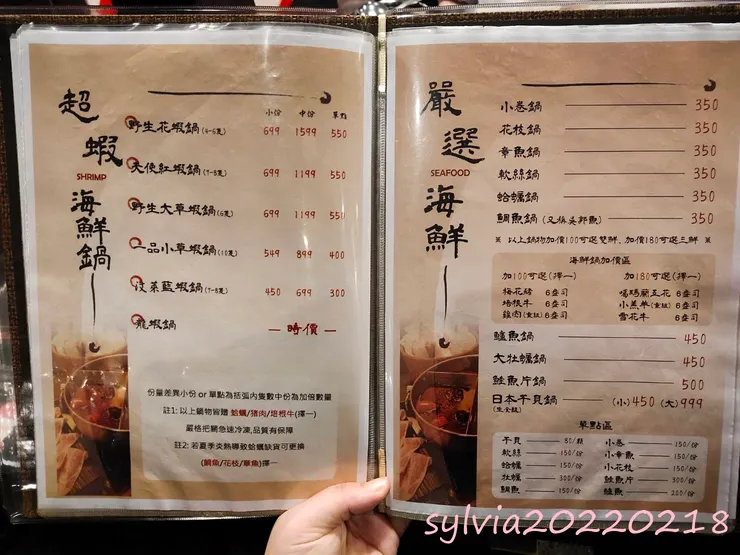 超蝦
SHRIMP
海鮮鍋
小份 中份 單點
野生花蝦鍋(4-6隻) 699 1599 550
天使紅蝦鍋(7-8隻) 699 1199 550
野生大草蝦鍋(6隻) 699 1199 550
一品小草蝦鍋(10隻) 549 899 400
汶萊藍蝦鍋(7-8隻) 450 699 300
龍蝦鍋 — 時價 —
份量差異小份 or 單點為括弧內隻數中份為加倍數量
註1: 以上鍋物皆贈 蛤蠣/豬肉/培根牛(擇一)
嚴格把關急速冷凍,品質有保障
註2: 若夏季炎熱導致蛤蠣缺貨可更換
(鯛魚/花枝/章魚)擇一
嚴選
SEAFOOD
海鮮
小卷鍋 350
花枝鍋 350
章魚鍋 350
軟絲鍋 350
蛤蠣鍋 350
鯛魚鍋(又稱吳郭魚) 350
※ 以上鍋物加價100可選雙鮮, 加價180可選三鮮 ※
海鮮鍋加價區
加100可選(擇一) 加180可選(擇一)
梅花豬 6盎司 噶瑪蘭五花 6盎司
培根牛 6盎司 小羔羊(重組) 6盎司
雞肉(重組) 6盎司 雪花牛 6盎司
鱸魚鍋 450
大牡蠣鍋 450
鮭魚片鍋 500
日本干貝鍋 (小)450 (大)999
(生食級)
單點區
干貝 80/顆 小卷 150/份
軟絲 150/份 小章魚 150/份
蛤蠣 150/份 小花枝 150/份
牡蠣 300/份 鮭魚片 300/份
鯛魚 150/份 鱸魚 200/份
sylvia20220218